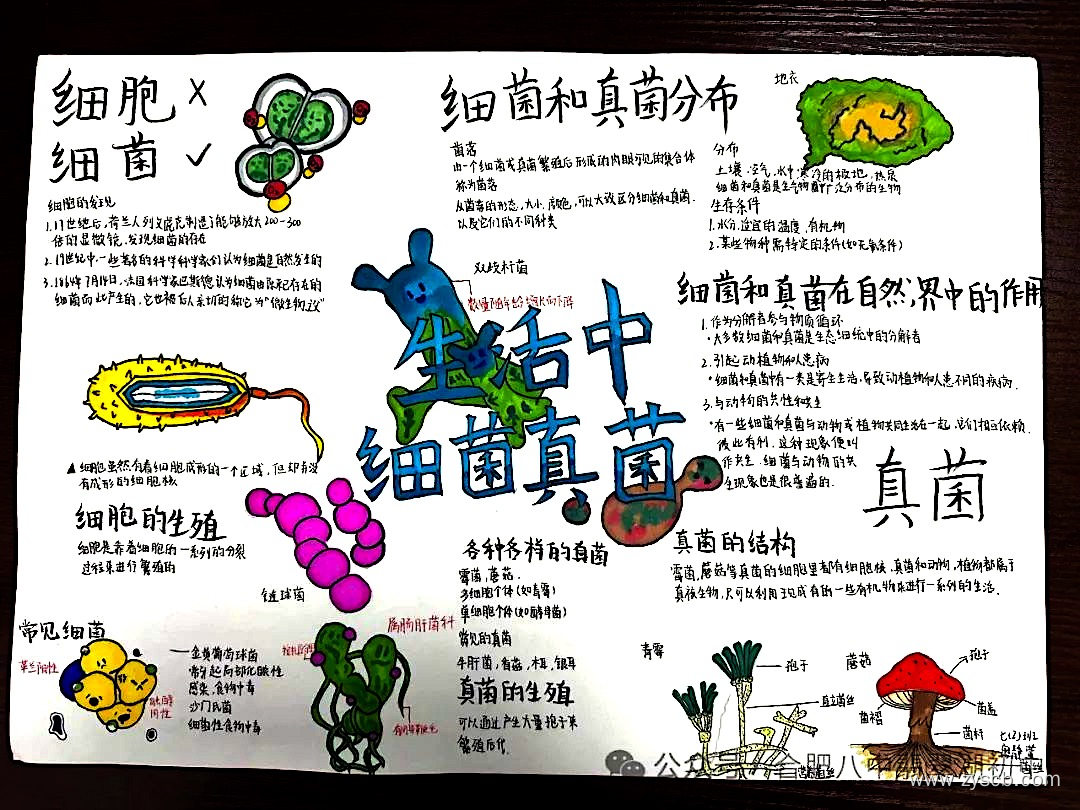 细胞 X
细菌 ✓
细胞的发现
1. 17世纪后，荷兰人列文虎克制造了能够放大200-300
倍的显微镜，发现细菌的存在
2. 19世纪中一些著名的科学科学家们认为细菌是自然发生的
3. 1864年7月14日，法国科学家巴斯德认为细菌由原已存在的
细菌而产生的，它也被后人亲切的称它为"微生物之父"
▲细胞虽然有着细胞成形的一个区域，但却有没
有成形的细胞核
细胞的生殖
细胞是靠着细胞的一系列的分裂
过程来进行繁殖的
链球菌
常见细菌
革兰阳性
金黄葡萄球菌
常引起局部化脓性
感染，食物中毒
沙门氏菌
细菌性食物中毒
属肠杆菌科
生活中
细菌真菌
双歧杆菌
数量随年龄增大而下降
细菌和真菌分布
菌落
由一个细菌或真菌繁殖后形成的肉眼可见的集合体
称为菌落
从菌落的形态，大小，颜色，可以大致区分细菌和真菌，
以及它们的不同种类
地衣
分布
土壤，空气，水中，寒冷的极地，热泉
细菌和真菌是生物圈中广泛分布的生物
生存条件
1. 水分，适宜的温度，有机物
2. 某些物种需特定的条件(如无氧条件)
细菌和真菌在自然界中的作用
1. 作为分解者参与物质循环
·大多数细菌和真菌是生态系统中的分解者
2. 引起动植物和人患病
·细菌和真菌中有一类是寄生生活，导致动植物和人患不同的疾病.
3. 与动物的共性和共生
·有一些细菌和真菌与动物或植物共同生活在一起，它们相互依赖，
彼此有利，这种现象便叫
作共生，细菌与动物的共
生现象也是很普遍的.
真菌
各种各样的真菌
霉菌，蘑菇.
多细胞个体(如青霉)
单细胞个体(如酵母菌)
常见的真菌
牛肝菌，香菇，木耳，银耳
真菌的生殖
可以通过产生大量孢子来
繁殖后代.
真菌的结构
霉菌，蘑菇等真菌的细胞里都有细胞核，真菌和动物，植物都属于
真核生物，只可以利用现成有的一些有机物来进行一系列的生活.
青霉
孢子
直立菌丝
营养菌丝
蘑菇
孢子
菌盖
菌褶
菌柄
菌丝
公众号
www.zyscb.com